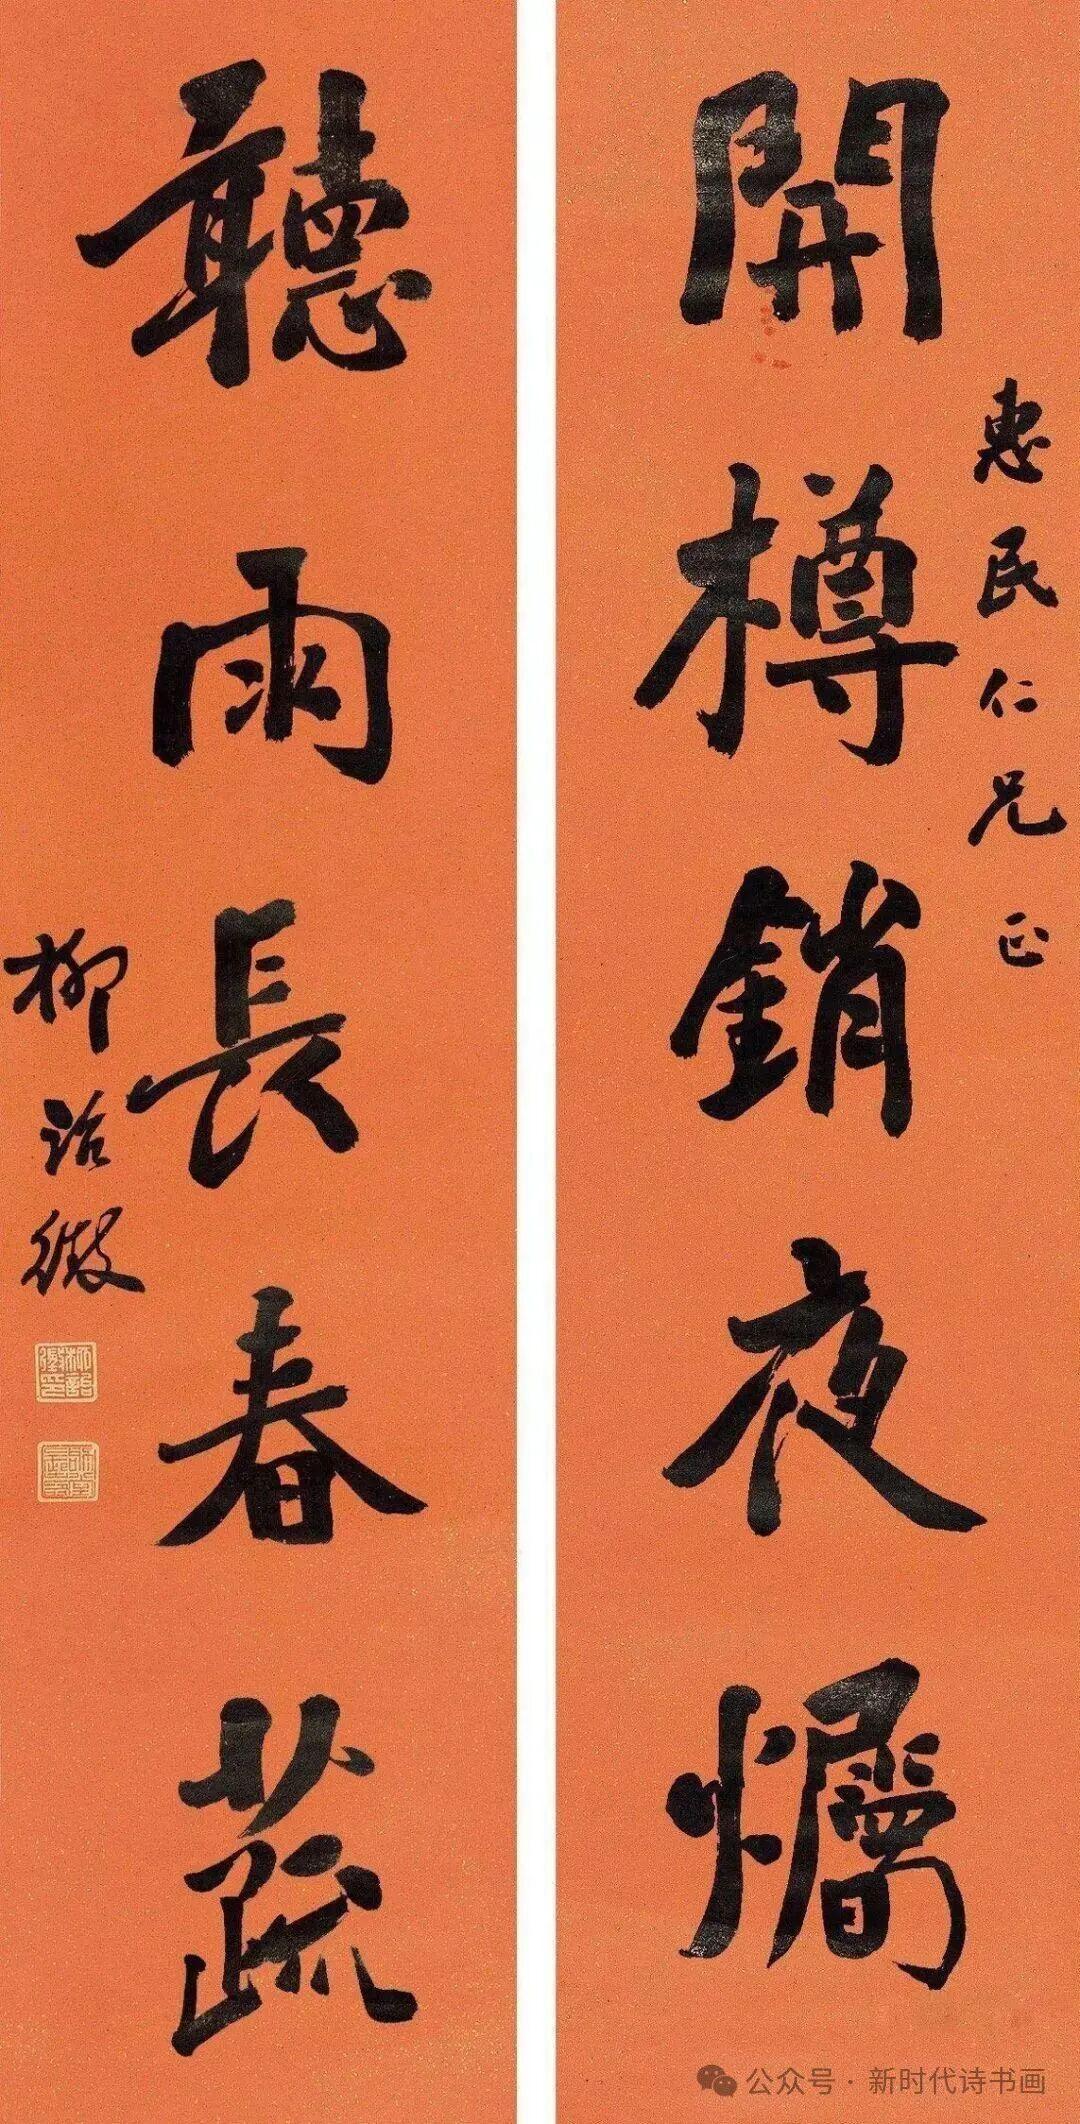 開樽銷夜爥
惠民仁兄正
聽雨長春蔬
柳詒徵
柳詒徵印
公众号·新时代诗书画